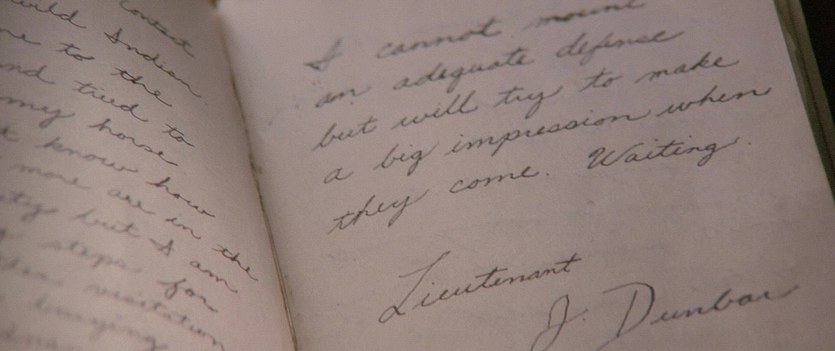 contact
wild Indian
me to the
and tried to
my horse.
know how
more are in the
but I am
steps for
visitation
I cannot mount
an adequate defense
but will try to make
a big impression when
they come. Waiting.
Lieutenant
J. Dunbar